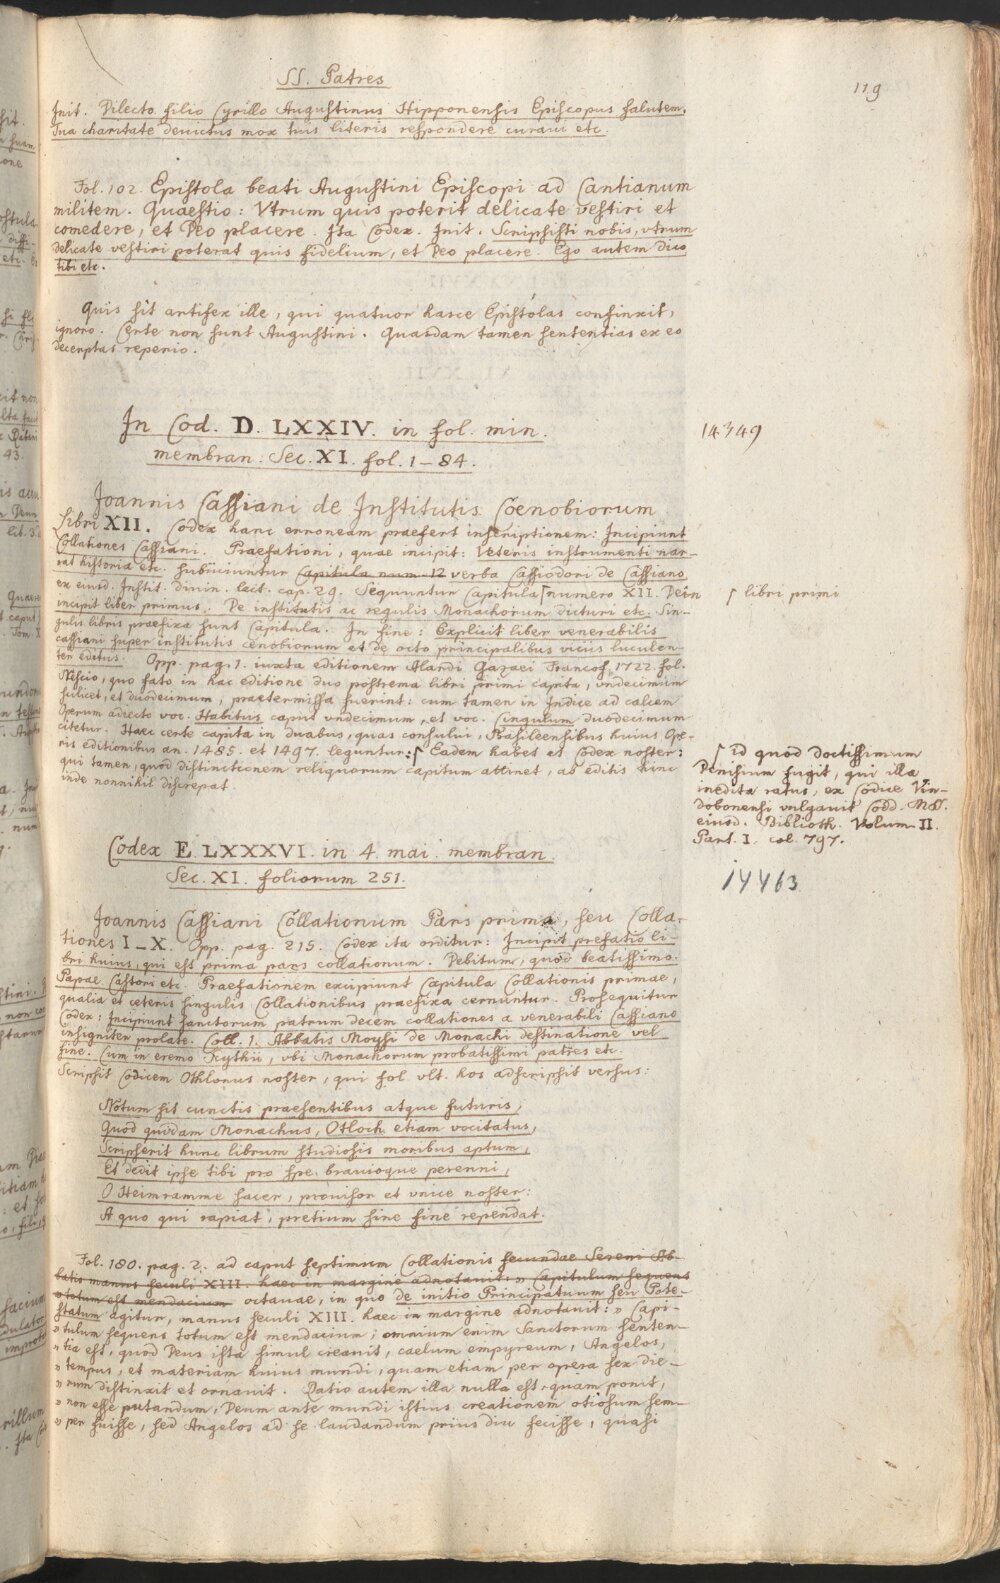 SS. Patres
119
Init. Dilecto filio Cyrillo Augustinus Hipponensis Episcopus salutem.
Tua charitate devictus mox tuis literis respondere curavi etc.
Fol. 102. Epistola beati Augustini Episcopi ad Cantianum
militem. Quaestio: Vtrum quis poterit delicate vestiri et
comedere, et Deo placere. Ita Codex. Init. Scripsisti nobis, vtrum
delicate vestiri poterat quis fidelium, et Deo placere. Ego autem dico
tibi etc.
Quis sit artifex ille, qui quatuor hasce Epistolas confinxit,
ignoro. Certe non sunt Augustini. Quasdam tamen sententias ex eo
decerptas reperio.
In Cod. D. LXXIV. in fol. min.
14349
membran. Sec. XI. fol. 1-84.
Joannis Cassiani de Institutis Coenobiorum
Libri XII. Codex hanc erroneam praefert inscriptionem: Incipiunt
Collationes Cassiani. Praefationi, quae incipit: Veteris instrumenti nar-
rat historia etc. subiiciuntur Capitula num. 12 verba Cassiodori de Cassiano
ex eiusd. Instit. divin. lect. cap. 29. Sequuntur Capitula ⌈ numero XII. Dein
⌈ libri primi
incipit liber primus. De institutis ac regulis Monachorum dicturi etc. Sin-
gulis libris praefixa sunt Capitula. In fine: Explicit liber venerabilis
cassiani super institutis cenobiorum et de octo principalibus viciis luculen-
ter editus. Opp. pag. 1. iuxta editionem Alardi Gazaei Francof. 1722. fol.
Nescio, quo fato in hac editione duo postrema libri primi capita, vndecimum
scilicet, et duodecimum, praetermissa fuerint: cum tamen in Indice ad calcem
Operum adiecto voc. Habitus caput vndecimum, et voc. Cingulum duodecimum
citetur. Haec certe capita in duabus, quas consului, Basileensibus huius Ope-
ris editionibus an. 1485. et 1497. leguntur: ⌈ Eadem habet et Codex noster:
qui tamen, quod distinctionem reliquorum capitum attinet, ab editis hinc
inde nonnihil discrepat.
⌈ id quod doctissimum
Denisium fugit, qui illa
inedita ratus, ex Codice Vin-
dobonensi vulgavit Codd. MSS.
eiusd. Biblioth. Volum. II.
Part. I. col. 797.
Codex E. LXXXVI. in 4. mai. membran.
14463
Sec. XI. foliorum 251.
Joannis Cassiani Collationum Pars prima, seu Colla-
tiones I-X. Opp. pag. 215. Codex ita orditur: Incipit prefatio li-
bri huius, qui est prima pars collationum. Debitum, quod beatissimo
Papae Castori etc. Praefationem excipiunt Capitula Collationis primae,
qualia et ceteris singulis Collationibus praefixa cernuntur. Prosequitur
Codex: Incipiunt sanctorum patrum decem collationes a venerabili Cassiano
insigniter prolate. Coll. 1. Abbatis Moysi de Monachi destinatione vel
fine. Cum in eremo Scythii, vbi Monachorum probatissimi patres etc.
Scripsit Codicem Othlonus noster, qui fol. vlt. hos adscripsit versus:
Notum sit cunctis praesentibus atque futuris,
Quod quidam Monachus, Otloch etiam vocitatus,
Scripserit hunc librum studiosis moribus aptum,
Et dedit ipse tibi pro spe bravioque perenni,
O Heimramme sacer, provisor et vnice noster:
A quo qui rapiat, pretium sine fine rependat.
Fol. 180. pag. 2. ad caput septimum Collationis secundae Sereni Ab-
batis manus seculi XIII. haec in margine adnotavit: » Capitulum sequens
» totum est mendacium octavae, in quo de initio Principatuum seu Pote-
statum agitur, manus seculi XIII. haec in margine adnotavit: » Capi-
» tulum sequens totum est mendacium; omnium enim Sanctorum senten-
» tia est, quod Deus ista simul creavit, caelum empyreum, Angelos,
» tempus, et materiam huius mundi, quam etiam per opera sex die-
» rum distinxit et ornavit. Ratio autem illa nulla est, quam ponit,
» non esse putandum, Deum ante mundi istius creationem otiosum sem-
» per fuisse, sed Angelos ad se laudandum prius diu fecisse, quasi